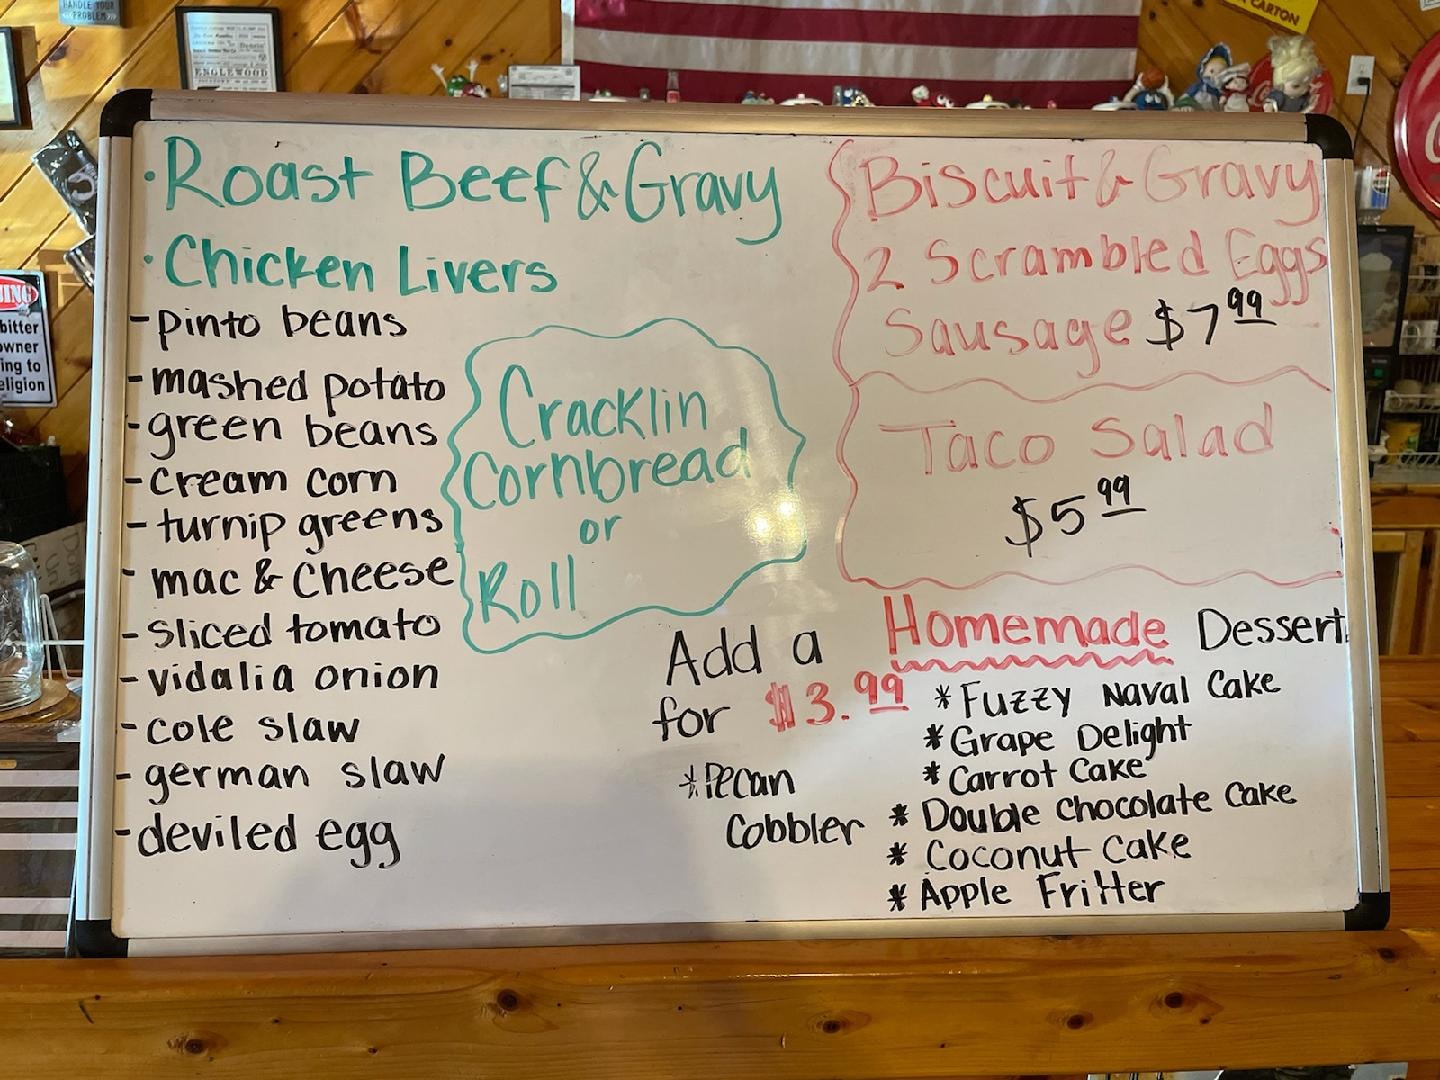 · Roast Beef & Gravy
· Chicken Livers
- pinto beans
- mashed potato
- green beans
- cream corn
- turnip greens
- mac & cheese
- sliced tomato
- vidalia onion
- cole slaw
- german slaw
- deviled egg
Cracklin
Cornbread
or
Roll
Biscuit & Gravy
2 Scrambled Eggs
Sausage $7 99
Taco Salad
$5 99
Add a Homemade Dessert
for $3.99
* Pecan
Cobbler
* Fuzzy Naval Cake
* Grape Delight
* Carrot Cake
* Double Chocolate Cake
* Coconut Cake
* Apple Fritter
HANDLE YOUR
PROBLEM
ENGLEWOOD
CARTON
bitter
owner
ing to
eligion